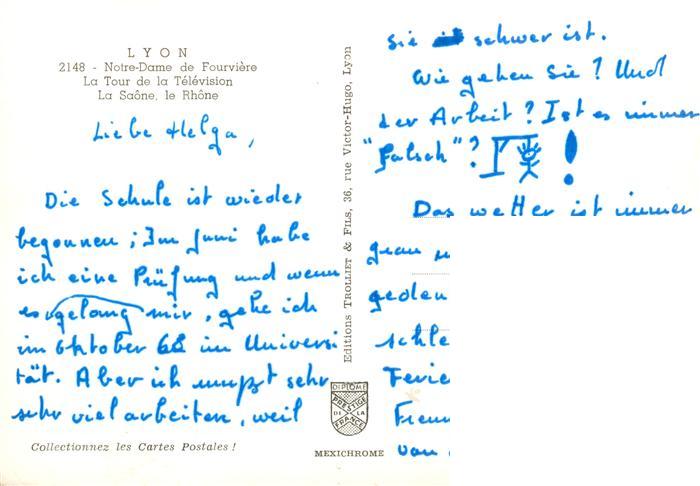 LYON
2148 - Notre-Dame de Fourvière
La Tour de la Télévision
La Saône, le Rhône
Liebe Helga,
Die Schule ist wieder
begonnen ; Im Juni habe
ich eine Prüfung und wenn
es gelang mir, gehe ich
im Oktober 68 im Universi
tät. Aber ich mußt sehr
sehr viel arbeiten, weil
Collectionnez les Cartes Postales !
Editions TROLLIET & FILS, 36, rue Victor-Hugo, Lyon
DIPLOME
PRESTIGE
DE LA
FRANCE
MEXICHROME
sie schwer ist.
Wie gehen Sie ? Und
der Arbeit ? Ist es immer
"Falsch" ? !
Das Wetter ist immer
grau
geden
schle
Ferie
Freun
von